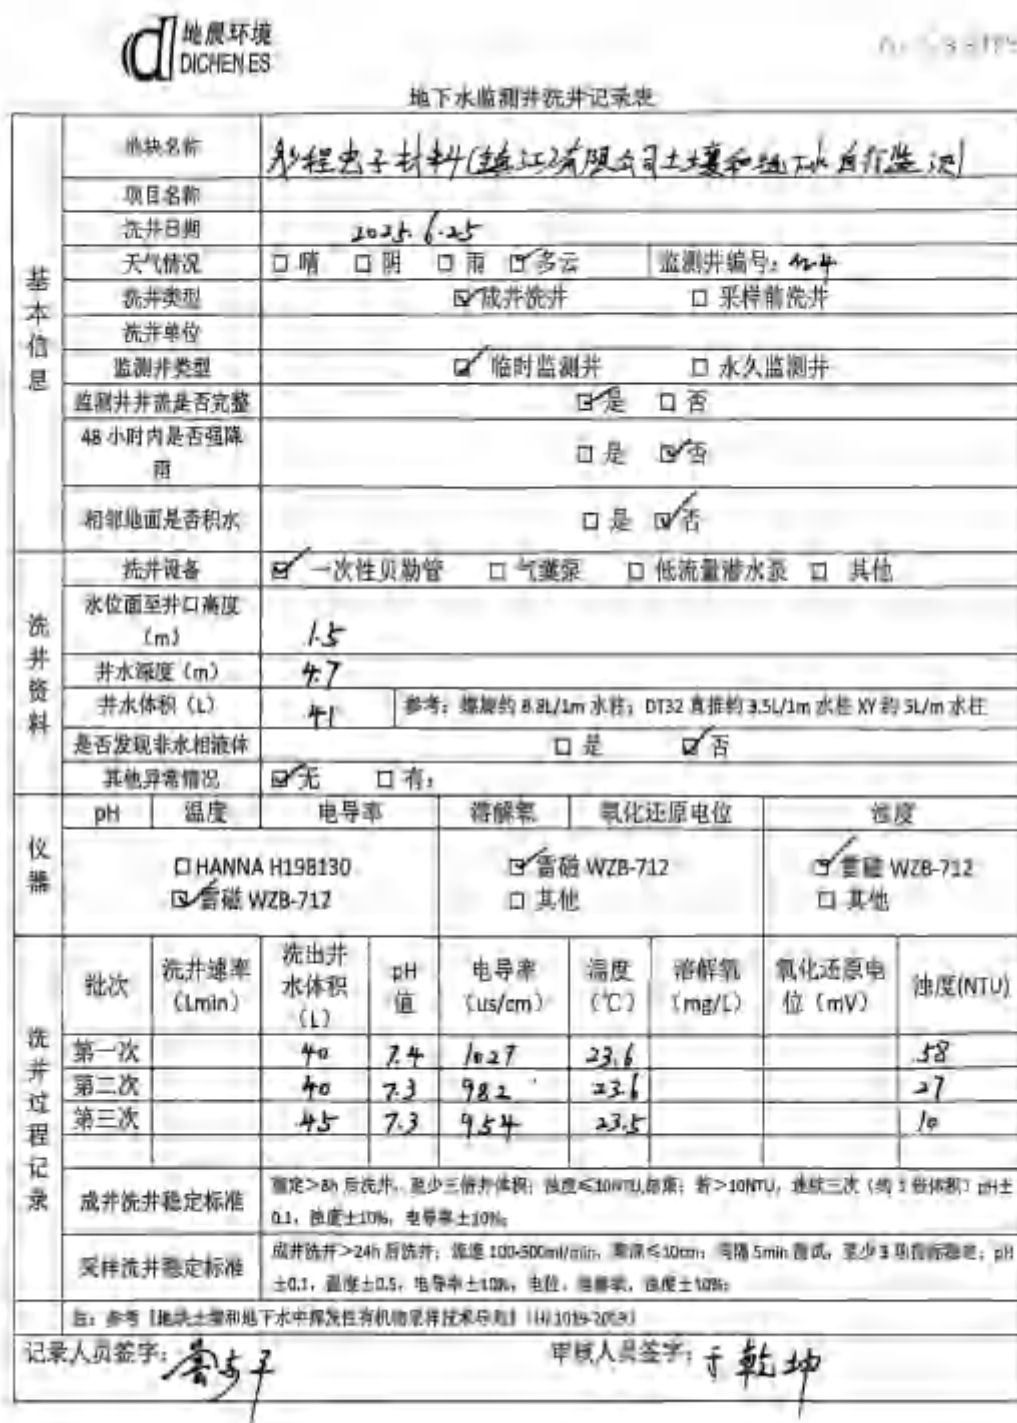 地晨环境
DICHEN ES
地下水监测井洗井记录表
基本信息
地块名称 电子材料(镇江)有限公司土壤和地下水自行监测
项目名称
洗井日期 2025.6.25
天气情况 □晴 □阴 □雨 ☑多云 监测井编号:
洗井类型 ☑成井洗井 □采样前洗井
洗井单位
监测井类型 ☑临时监测井 □永久监测井
监测井井盖是否完整 ☑是 □否
48小时内是否强降
雨 □是 ☑否
相邻地面是否积水 □是 ☑否
洗井资料
洗井设备 ☑一次性贝勒管 □气囊泵 □低流量潜水泵 □其他
水位面至井口高度
(m) 1.5
井水深度(m) 4.7
井水体积(L) 41 参考:螺旋约8.8L/1m水柱;DT32直推约3.5L/1m水柱 XY约5L/m水柱
是否发现非水相液体 □是 ☑否
其他异常情况 ☑无 □有:
仪器
pH 温度 电导率 溶解氧 氧化还原电位 浊度
□HANNA H198130 ☑雷磁 WZB-712 ☑雷磁 WZB-712
☑雷磁 WZB-712 □其他 □其他
洗井过程记录
批次 洗井速率(Lmin) 洗出井水体积(L) pH值 电导率(us/cm) 温度(℃) 溶解氧(mg/L) 氧化还原电位(mV) 浊度(NTU)
第一次 40 7.4 1027 23.6 58
第二次 40 7.3 982 23.6 27
第三次 45 7.3 954 23.5 10
成井洗井稳定标准 稳定>8h后洗井,至少三倍井体积;浊度≤10NTU,结束;若>10NTU,连续三次(约1倍体积)pH±
0.1,浊度±10%,电导率±10%;
采样洗井稳定标准 成井洗井>24h后洗井;流速100-500ml/min,降深≤10cm;间隔5min测试,至少3项指标稳定;pH
±0.1,温度±0.5,电导率±10%,电位、溶解氧、浊度±10%;
注:参考【地块土壤和地下水中挥发性有机物采样技术导则】(HJ 1019-2019)
记录人员签字: 审核人员签字:于乾坤